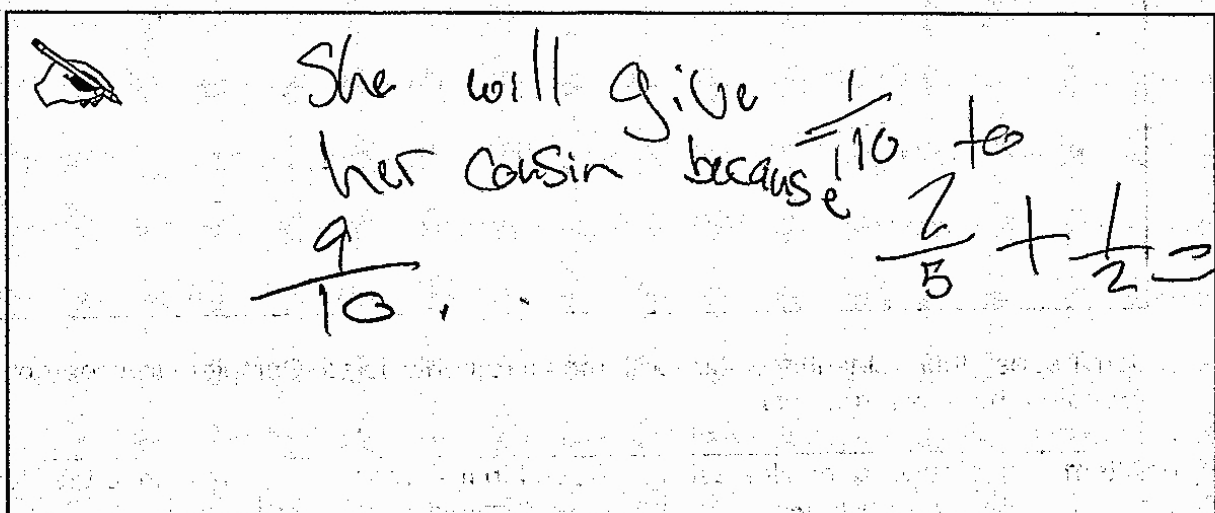 She will give 1/10 to
her cousin because 2/5 + 1/2 =
9/10.